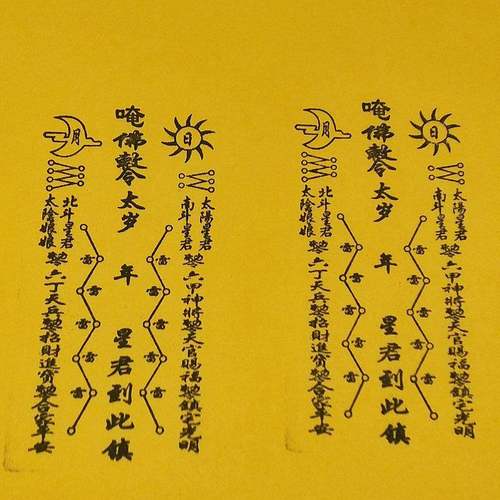 日
太陽星君
南斗星君
勅六甲神將勅天官賜福勅鎮宅光明
雷雷雷雷雷
唵佛勅令太岁 年 星君到此鎮
雷雷雷雷雷
月
北斗星君
太陰娘娘
勅六丁天兵勅招財進寶勅合家平安
日
太陽星君
南斗星君
勅六甲神將勅天官賜福勅鎮宅光明
雷雷雷雷雷
唵佛勅令太岁 年 星君到此鎮
雷雷雷雷雷
月
北斗星君
太陰娘娘
勅六丁天兵勅招財進寶勅合家平安